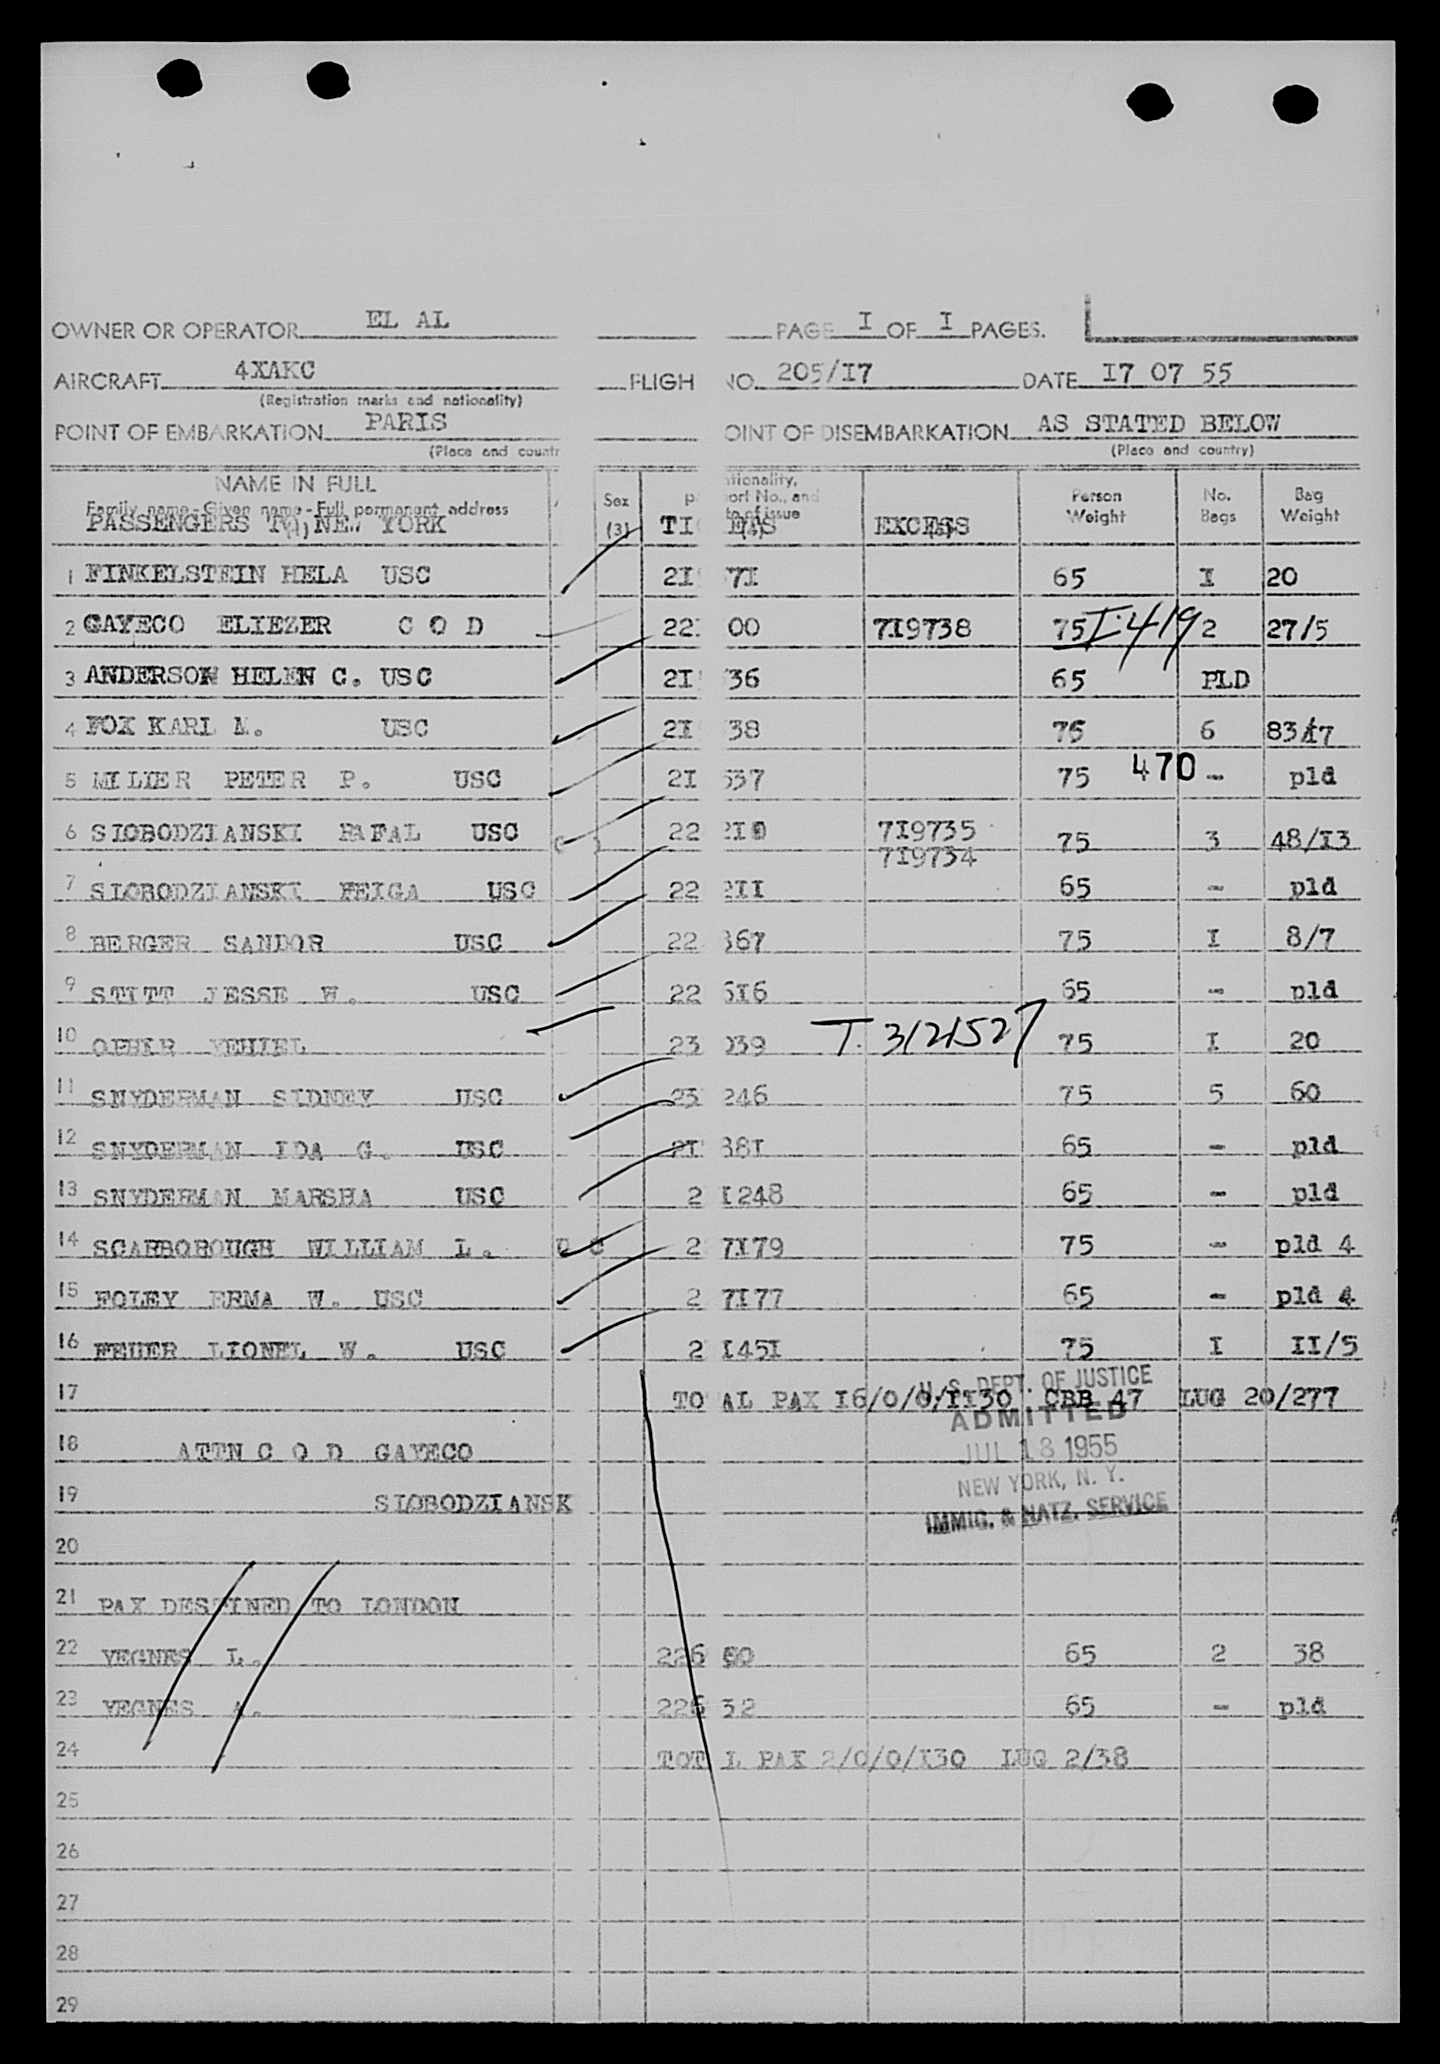 OWNER OR OPERATOR EL AL PAGE I OF I PAGES.
AIRCRAFT 4XAKC FLIGH NO. 205/I7 DATE I7 07 55
(Registration marks and nationality)
POINT OF EMBARKATION PARIS OINT OF DISEMBARKATION AS STATED BELOW
(Place and countr (Place and country)
NAME IN FULL
Family name - Given name - Full permanent address Sex (3) ort No., and of issue Person Weight No. Bags Bag Weight
PASSENGERS TO NEW YORK EXCESS
1 FINKELSTEIN HELA USC 2I 7I 65 I 20
2 GAYECO ELIEZER C O D 22 00 7I9738 75 I-419 2 27/5
3 ANDERSON HELEN C. USC 2I 36 65 PLD
4 FOX KARL M. USC 2I 38 75 6 83/I7
5 MILIER PETER P. USC 2I 537 75 470 - pld
6 SIOBODZIANSKI RAFAL USC 22 2I0 7I9735 75 3 48/I3
7I9734
7 SIOBODZIANSKI FEIGA USC 22 2II 65 - pld
8 BERGER SANDOR USC 22 367 75 I 8/7
9 STITT JESSE W. USC 22 5I6 65 - pld
10 OPHIR YEHIEL 23 039 T. 3121527 75 I 20
11 SNYDERMAN SIDNEY USC 23 246 75 5 60
12 SNYDERMAN IDA G. USC 2I 38I 65 - pld
13 SNYDERMAN MARSHA USC 2 I248 65 - pld
14 SCARBOROUGH WILLIAM L. U C 2 7I79 75 - pld 4
15 FOLEY ERMA W. USC 2 7I77 65 - pld 4
16 FEUER LIONEL W. USC 2 I45I 75 I II/5
17 TO AL PAX I6/0/0/II30 CBB 47 LUG 20/277
U.S. DEPT. OF JUSTICE
ADMITTED
18 ATTN C O D GAYECO
JUL 18 1955
NEW YORK, N. Y.
19 SIOBODZIANSK
IMMIG. & NATZ. SERVICE
20
21 PAX DESTINED TO LONDON
22 YEGNES L. 226 65 2 38
23 YEGNES A. 226 32 65 - pld
24 TOT L PAX 2/0/0/I30 LUG 2/38
25
26
27
28
29